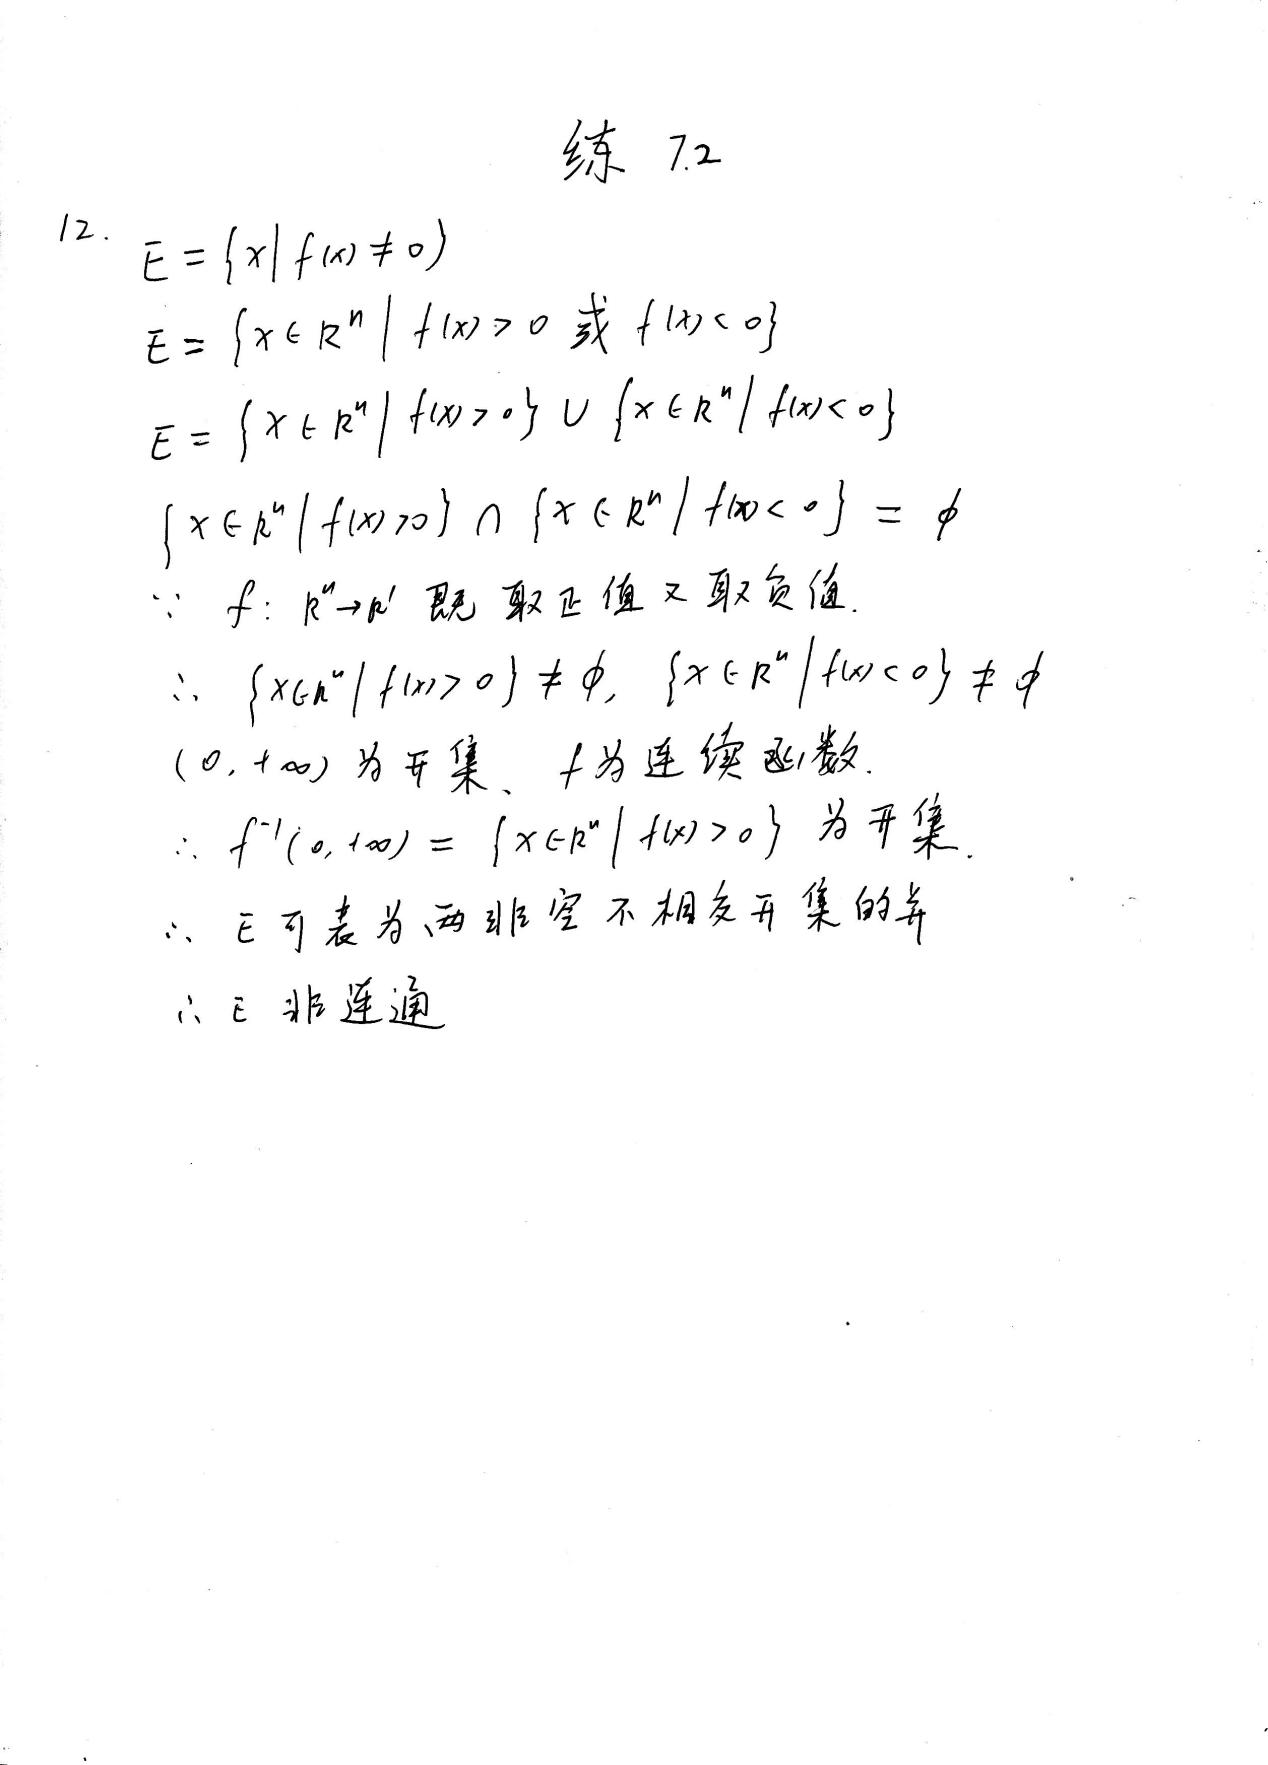 练 7.2
12.
E = {x | f(x) ≠ 0)
E = {x ∈ Rⁿ | f(x) > 0 或 f(x) < 0}
E = {x ∈ Rⁿ | f(x) > 0} ∪ {x ∈ Rⁿ | f(x) < 0}
{x ∈ Rⁿ | f(x) > 0} ∩ {x ∈ Rⁿ | f(x) < 0} = ϕ
∵ f: Rⁿ → R¹ 既取正值又取负值.
∴ {x ∈ Rⁿ | f(x) > 0} ≠ ϕ, {x ∈ Rⁿ | f(x) < 0} ≠ ϕ
(0, +∞) 为开集、 f为连续函数.
∴ f⁻¹(0, +∞) = {x ∈ Rⁿ | f(x) > 0} 为开集.
∴ E可表为两非空不相交开集的并
∴ E 非连通